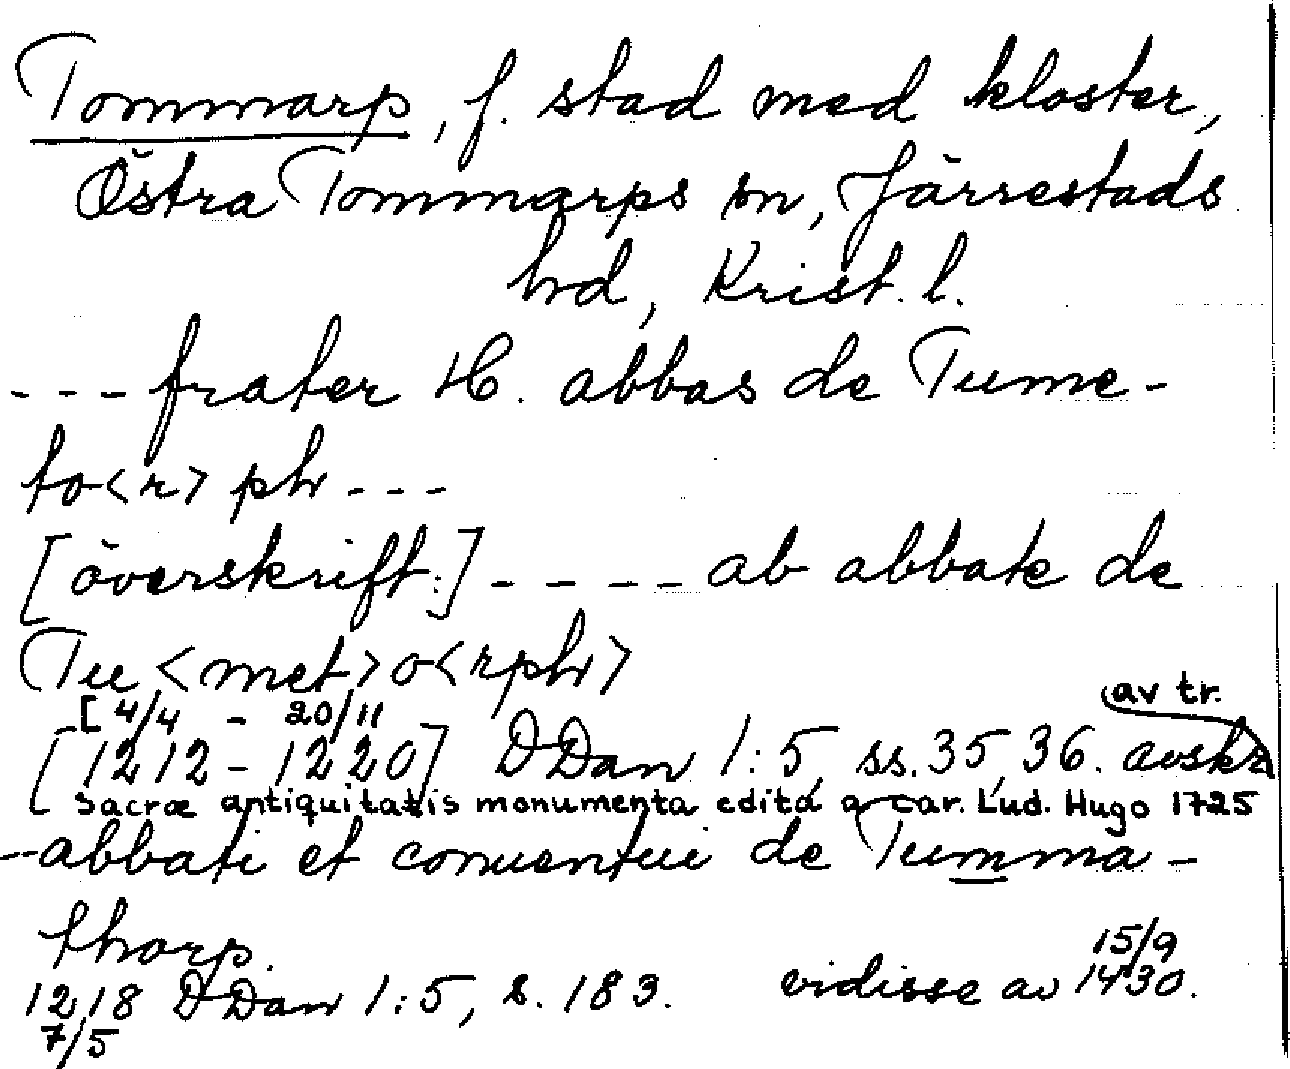 Tommarp, f. stad med kloster,
Östra Tommarps sn, Järrestads
hd, Krist. l.
--- frater H. abbas de Tume-
to<r>ph ---
[överskift:] ---- ab abbate de
Tu<met>o<rph>
[4/4 - 20/11 av tr.
[1212-1220] DDan 1:5, ss. 35, 36. avskr
Sacræ antiquitatis monumenta edita a car. Lud. Hugo 1725
--abbati et conuentui de Tumma-
thorp.
15/9
1218 DDan 1:5, s. 183. vidisse av 1430.
7/5